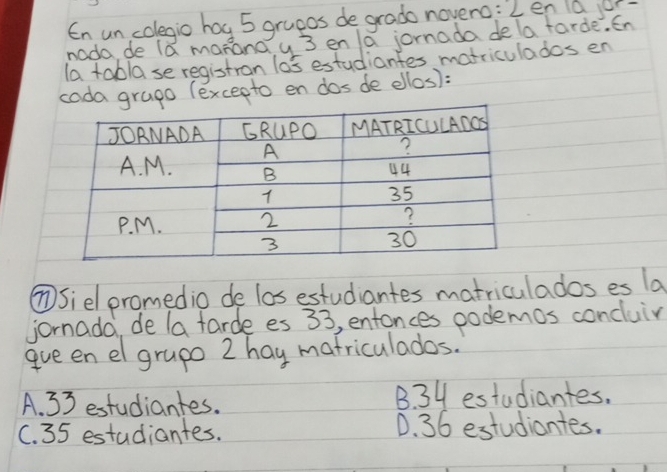 En un colegio hay 5 grupos de grado noveno: 2 en la jor-
nada de la mañana y 3 en la jornada de la tarde. En
la tabla se registran los estudiantes matriculados en
cada grupo (excepto en dos de ellos):
JORNADA GRUPO MATRICULADOS
A.M. A ?
B 44
P.M. 1 35
2 ?
3 30
11 Si el promedio de los estudiantes matriculados es la
jornada de la tarde es 33, entonces podemos concluir
que en el grupo 2 hay matriculados.
A. 33 estudiantes. B. 34 estudiantes.
C. 35 estudiantes. D. 36 estudiantes.